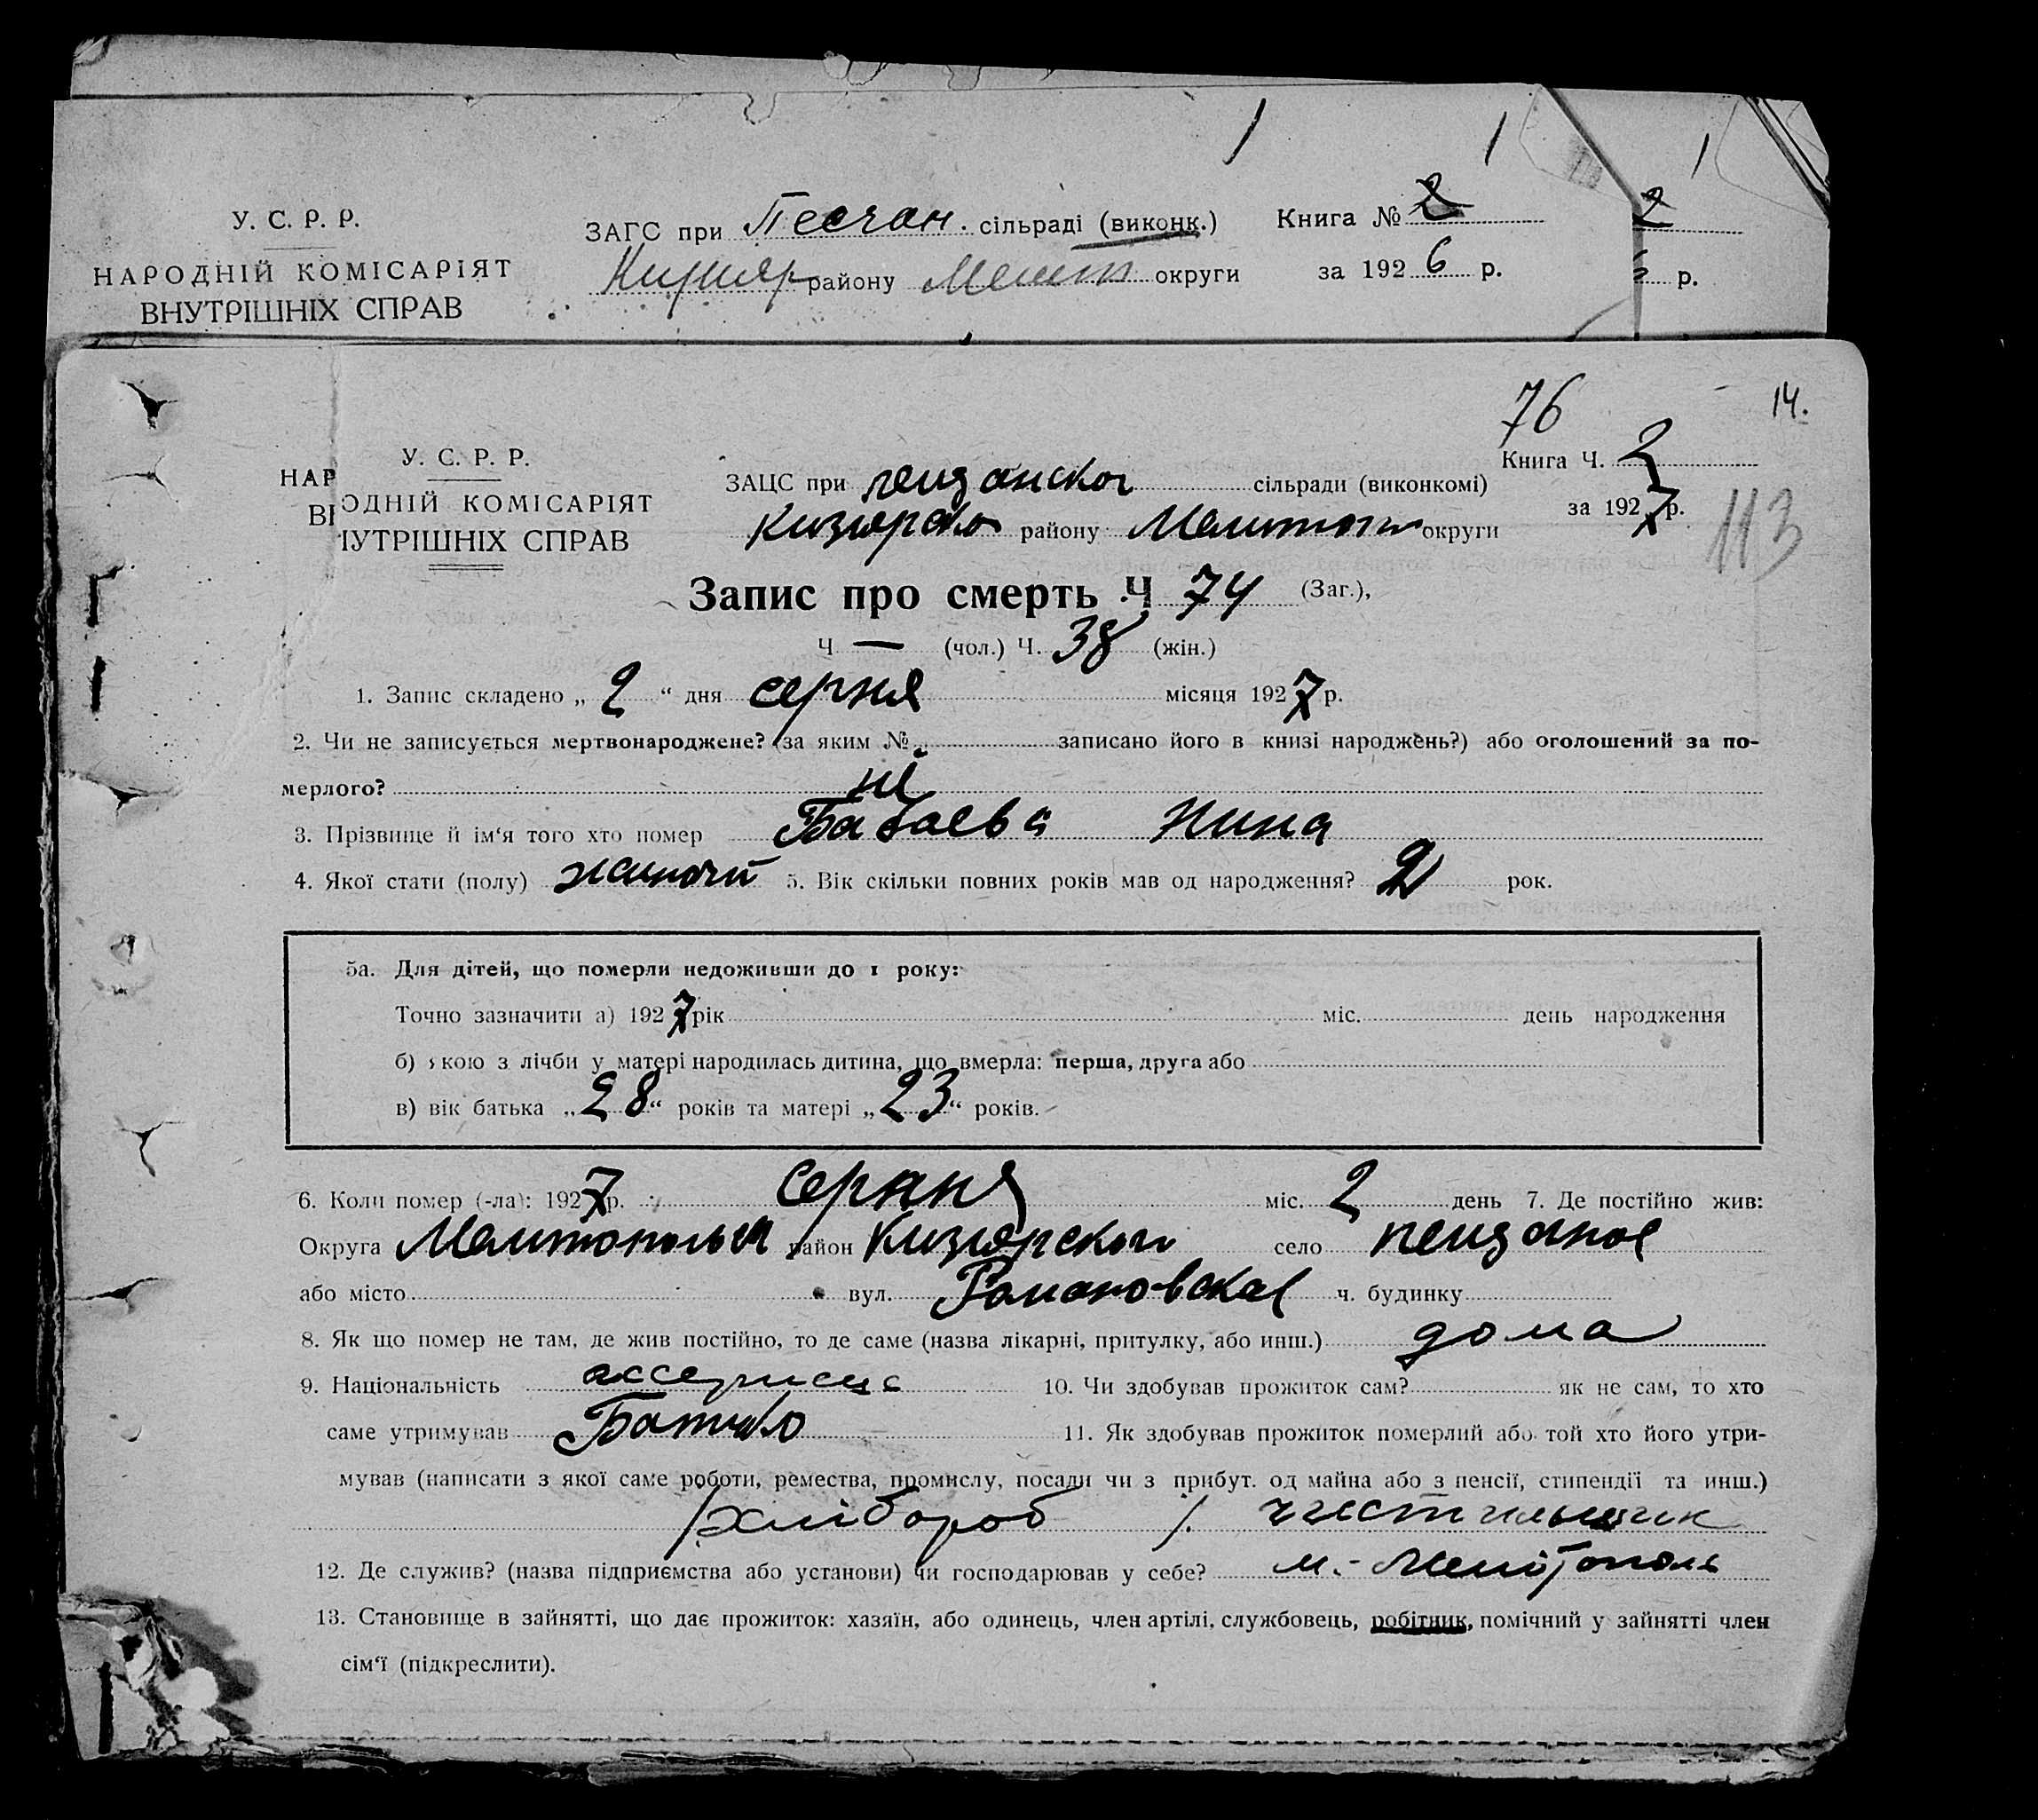 У. С. Р. Р.
НАРОДНІЙ КОМІСАРІЯТ
ВНУТРІШНІХ СПРАВ
ЗАГС при Песчан. сільраді (виконк.)
району Мелит округи
Книга № 2
за 1926 р.
2
р.
76
14.
НАР
ВІ
У. С. Р. Р.
ОДНІЙ КОМІСАРІЯТ
ІУТРІШНІХ СПРАВ
ЗАЦС при сільради (виконкомі)
Кизіярско району Мелитоп округи
Книга Ч. 2
за 1927 р.
113
Запис про смерть Ч 74 (Заг.),
Ч — (чол.) Ч. 38 (жін.)
1. Запис складено „ 2 “ дня серня місяця 1927 р.
2. Чи не записується мертвонароджене? (за яким № записано його в книзі народжень?) або оголошений за по-
мерлого? ні
3. Прізвище й ім‘я того хто помер Бабаева Нина
4. Якої стати (полу) жиночій 5. Вік скільки повних років мав од народження? 2 рок.
5а. Для дітей, що померли недоживши до 1 року:
Точно зазначити а) 1927 рік міс. день народження
б) якою з лічби у матері народилась дитина, що вмерла: перша, друга або
в) вік батька „28“ років та матері „23“ років.
6. Коли помер (-ла): 1927 р. серпня міс. 2 день 7. Де постійно жив:
Округа район Кизіярского село
або місто вул. Романовская ч. будинку
8. Як що помер не там, де жив постійно, то де саме (назва лікарні, притулку, або инш.) дома
9. Національність 10. Чи здобував прожиток сам? як не сам, то хто
саме утримував Батько 11. Як здобував прожиток померлий або той хто його утри-
мував (написати з якої саме роботи, ремества, промислу, посади чи з прибут. од майна або з пенсії, стипендії та инш.)
/хлібороб/. чистильщик
12. Де служив? (назва підприємства або установи) чи господарював у себе? м.- Мелітополь
13. Становище в зайнятті, що дає прожиток: хазяїн, або одинець, член артілі, службовець, робітник, помічний у зайнятті член
сім‘ї (підкреслити).